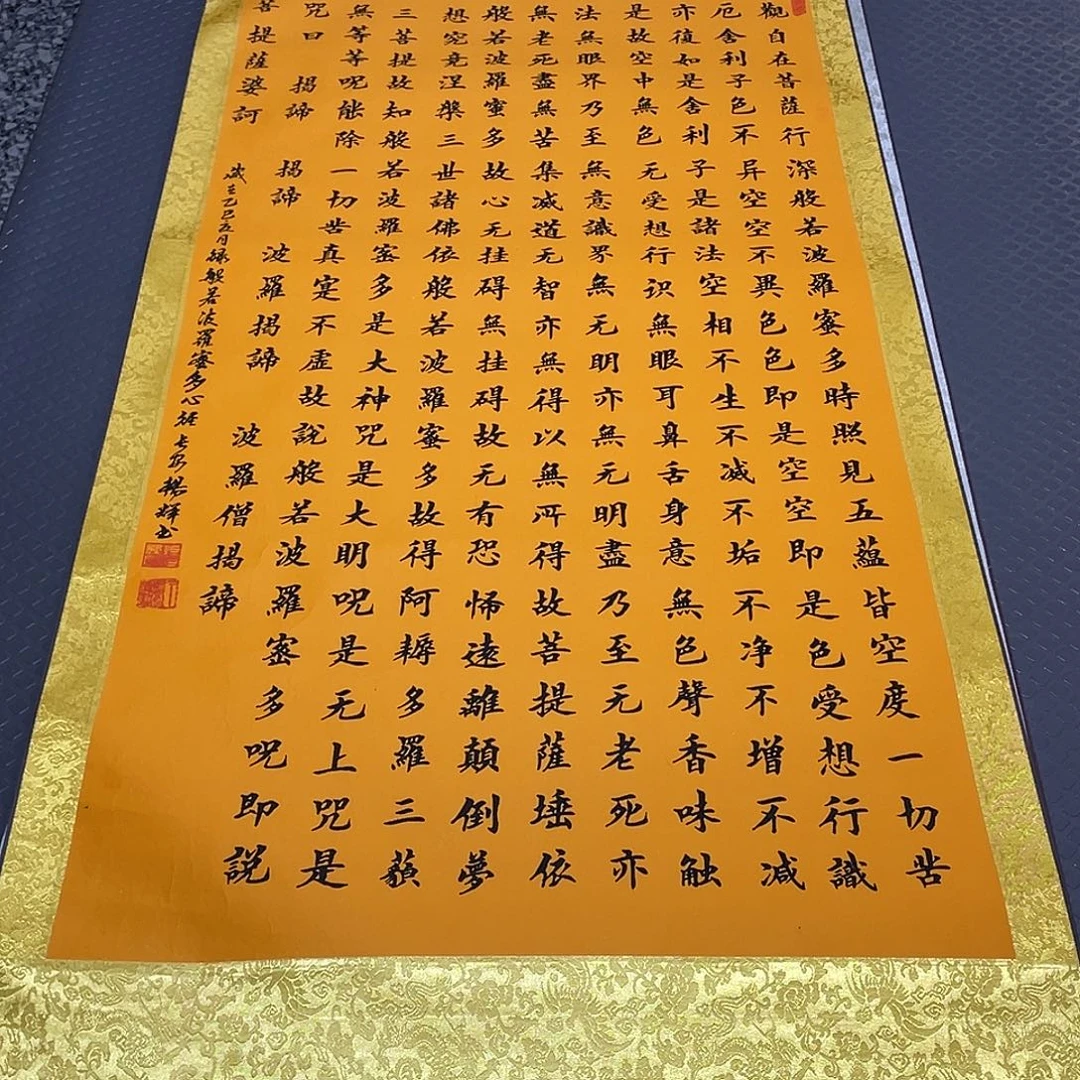 觀自在菩薩行深般若波羅蜜多時照見五蘊皆空度一切苦
厄舍利子色不异空空不異色色即是空空即是色受想行識
亦復如是舍利子是諸法空相不生不减不垢不净不增不减
是故空中無色无受想行识無眼耳鼻舌身意無色聲香味触
法無眼界乃至無意識界無无明亦無无明盡乃至无老死亦
無老死盡無苦集减道无智亦無得以無所得故菩提薩埵依
般若波羅蜜多故心无挂碍無挂碍故无有恐怖遠離顛倒夢
想究竟涅槃三世諸佛依般若波羅蜜多故得阿耨多羅三藐
三菩提故知般若波羅蜜多是大神咒是大明呪是无上咒是
無等等呪能除一切苦真寔不虛故說般若波羅蜜多呪即說
咒曰 揭諦 揭諦 波羅揭諦 波羅僧揭諦
菩提薩婆訶
歲在乙巳五月錄般若波羅蜜多心經長安楊輝書